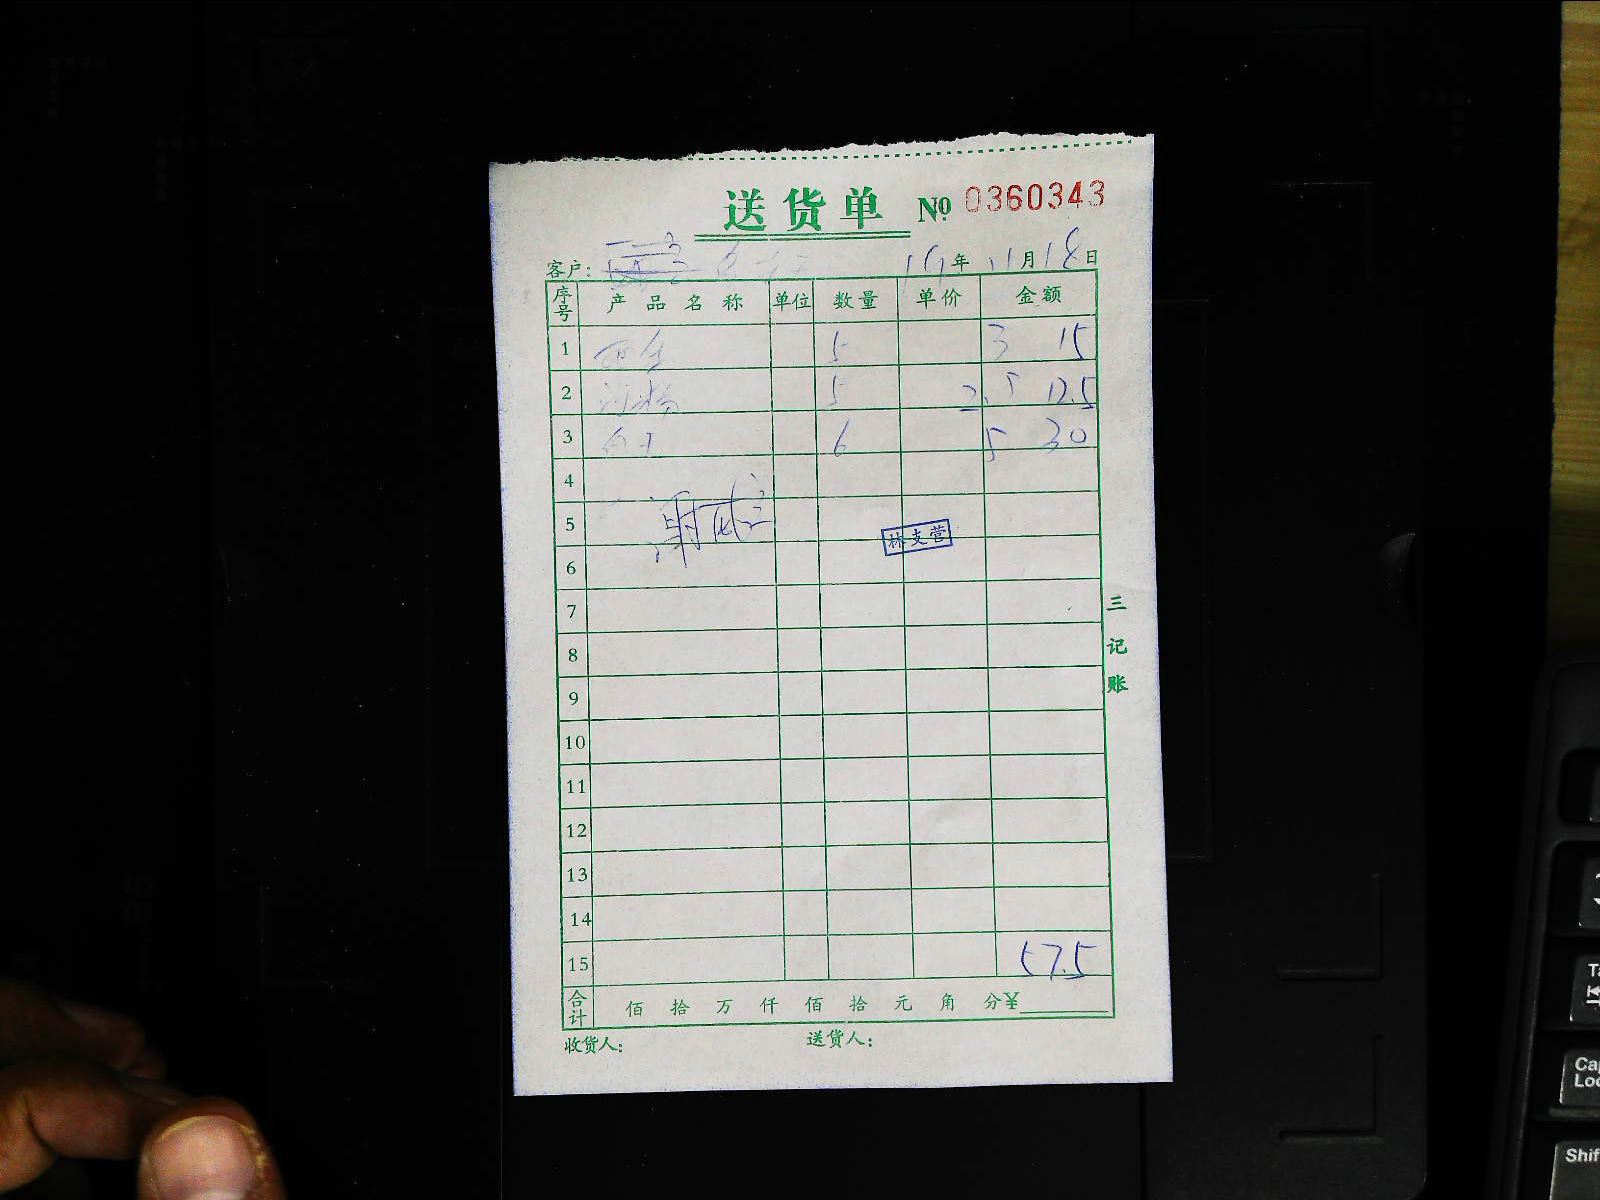 送货单 № 0360343
客户: 年 11月18日
序号 产品名称 单位 数量 单价 金额
1 5 3 15
2 河粉 5 2.5 12.5
3 6 5 30
4
5
林支营
6
7
三记账
8
9
10
11
12
13
14
15 57.5
合计 佰 拾 万 仟 佰 拾 元 角 分¥
收货人: 送货人:
Ta
Cap
Loc
Shif